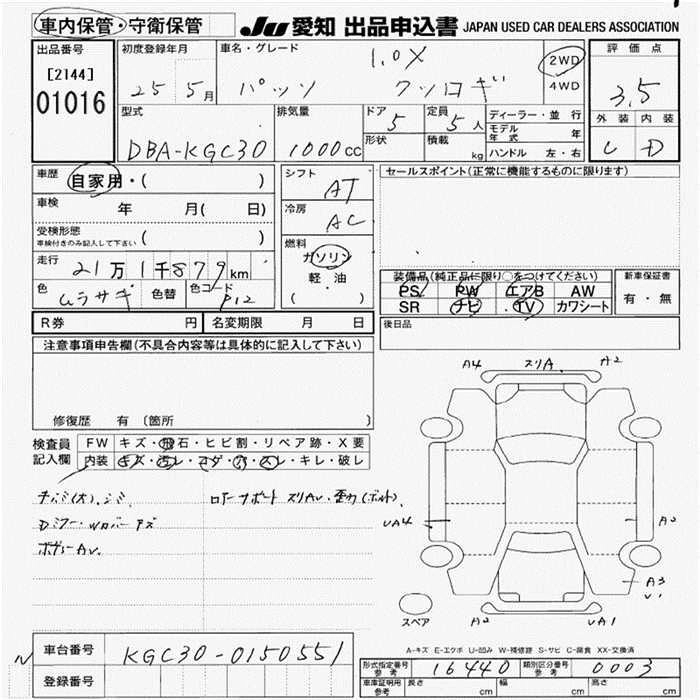 車内保管・守衛保管
JU 愛知 出品申込書 JAPAN USED CAR DEALERS ASSOCIATION
出品番号 初度登録年月 車名・グレード 1.0X 2WD 評価点
[2144] 25 5月 パッソ クツロギ 4WD 3.5
01016 外装 内装
型式 排気量 ドア 定員 ディーラー・並行
DBA-KGC30 1000cc 5 5人 モデル年式 年
形状 積載 kg ハンドル 左・右 C D
車歴 自家用・( ) シフト AT セールスポイント(正常に機能するものに限ります)
車検 年 月( 日) 冷房 AC
受検形態 車検付きのみ記入して下さい ( ) 燃料
走行 21万1千879km ガソリン 装備品(純正品に限り○をつけてください) 新車保証書
色 ムラサキ 色替 色コード P12 軽・油 PS PW エアB AW 有・無
( ) SR ナビ TV カワシート
R券 円 名変期限 月 日 後日品
注意事項申告欄(不具合内容等は具体的に記入して下さい)
修復歴 有 〔箇所 〕
検査員記入欄 FW キズ・飛石・ヒビ割・リペア跡・X要
内装 キズ・汚レ・コゲ・穴・スレ・キレ・破レ
A4 スリA A2
UA4 A2
ボディーAU.
A3
スペア A2 UA1
A-キズ E-エクボ U-凹み W-補修跡 S-サビ C-腐食 XX-交換済
車台番号 KGC30-0150551
形式指定番号 参考 16440 類別区分番号 参考 0003
登録番号 車庫証明用 参考 長さ cm 幅 cm 高さ cm